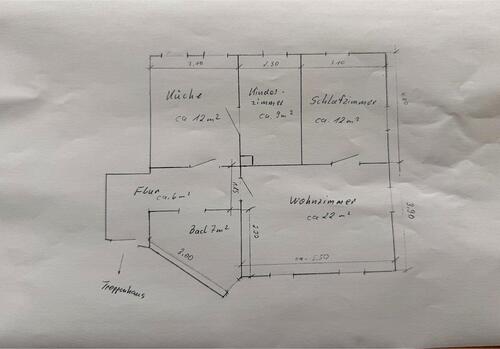 3.10
2.50
3.10
Küche
ca 12 m²
Kindes-
zimmer
ca. 9 m²
Schlafzimmer
ca. 12 m²
Flur
ca. 6 m²
1.15
Wohnzimmer
ca 22 m²
3.90
Bad 7 m²
2.50
3.00
ca. 5.50
Treppenhaus